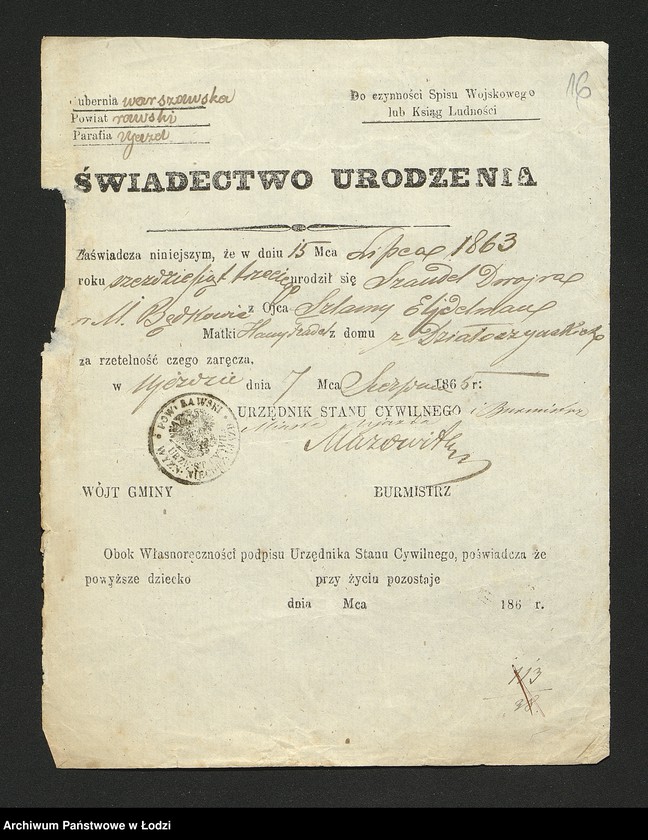 16
Gubernia warszawska
Powiat rawski
Parafia Ujazd
Do czynności Spisu Wojskowego
lub Ksiąg Ludności
ŚWIADECTWO URODZENIA
Zaświadcza niniejszym, że w dniu 15 Mca Lipca 1863
roku sześćdziesiąt trzeciego urodził się Szandel Dwojra
w M. Będkowie z Ojca Szlamy Ejdelman
Matki z domu z Działoszyńskich
za rzetelność czego zaręcza,
w Ujeździe dnia 7 Mca Sierpnia 1865 r:
URZĘDNIK STANU CYWILNEGO i Burmistrz
Miasta Ujazda
POW. RAWSKI
WÓJT GMINY BURMISTRZ
Obok Własnoręczności podpisu Urzędnika Stanu Cywilnego, poświadcza że
powyższe dziecko przy życiu pozostaje
dnia Mca 186 r.
113
38.
Archiwum Państwowe w Łodzi